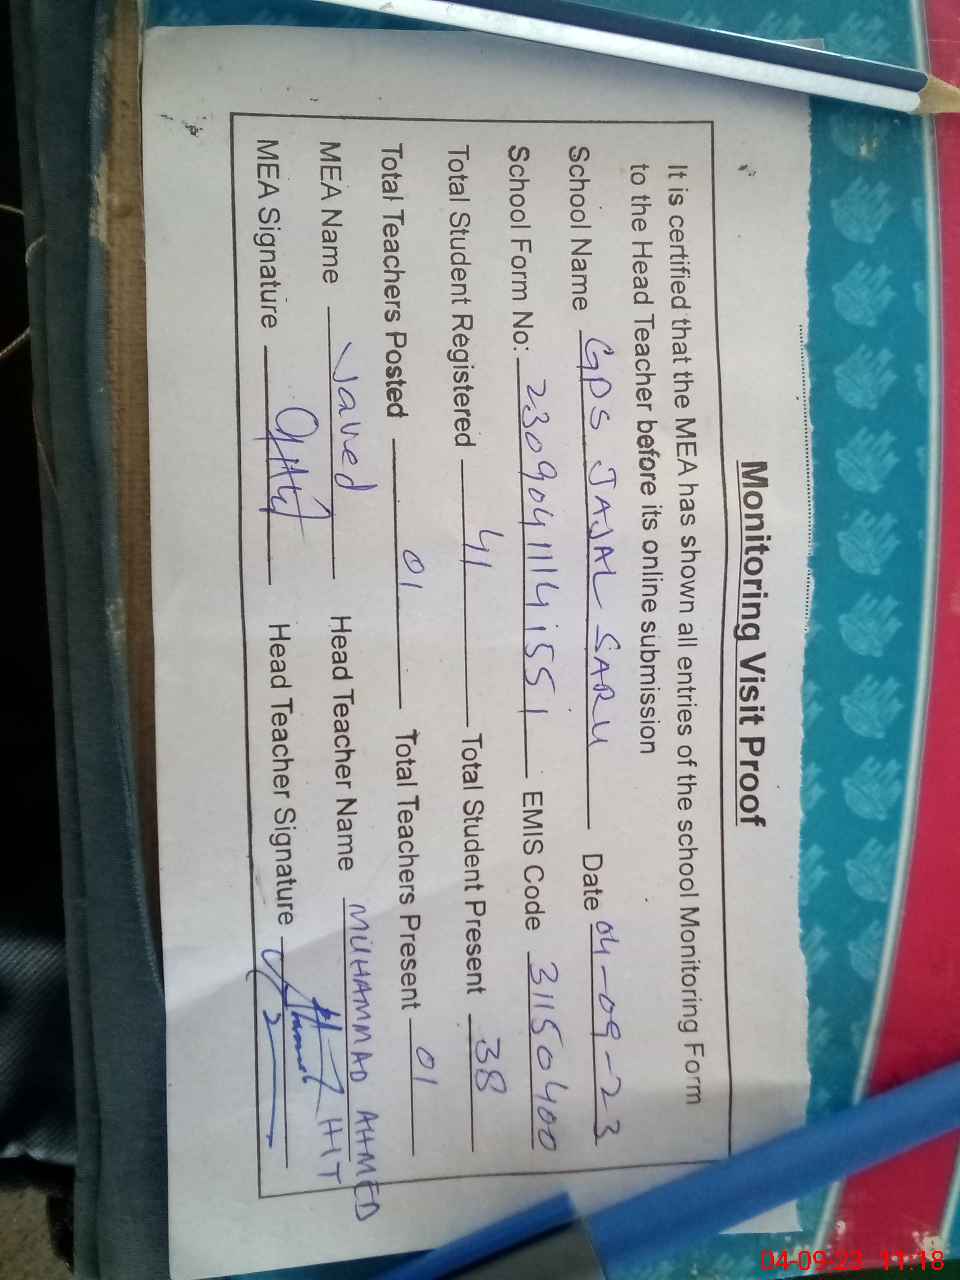 Monitoring Visit Proof
It is certified that the MEA has shown all entries of the school Monitoring Form
to the Head Teacher before its online submission
School Name GPS JAJAL SARU Date 04-09-23
School Form No: 23090411141551 EMIS Code 31150400
Total Student Registered 41 Total Student Present 38
Total Teachers Posted 01 Total Teachers Present 01
MEA Name Javed Head Teacher Name MUHAMMAD AHMED
MEA Signature Head Teacher Signature
04-09-23 11:18